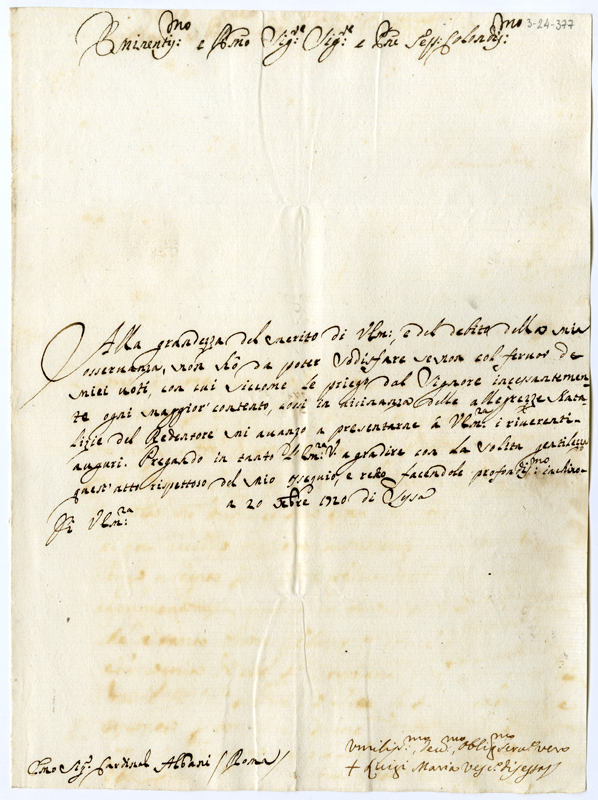 3-24-377
Eminentis:mo e Rmo Sig:re Sig:re e Pne Col:mo
Alla grandezza del merito di V. Em:, e del debito della mia
osservanza, non hò da poter sodisfare se non col fervor de
miei voti, con cui siccome le priego dal Signore incessantemen-
te ogni maggior contento, così in vicinanza delle allegrezze Nata-
lizie del Redentore mi avanzo a presentarne à V. Em:za i riverenti
auguri. Pregando in tanto l'Em:za V. a gradire con la solita gentilezza
quest'atto rispettoso del mio ossequio, e resto facendole profondis:mo inchino
Di V. Em:za
a 20 Xbre 1720 di Sessa
Emo Sig: Cardinal Albani / Roma /
Umilis:mo, Dev:mo, Oblig:mo Serv:e vero
+ Luigi Maria Vesc:o di Sessa